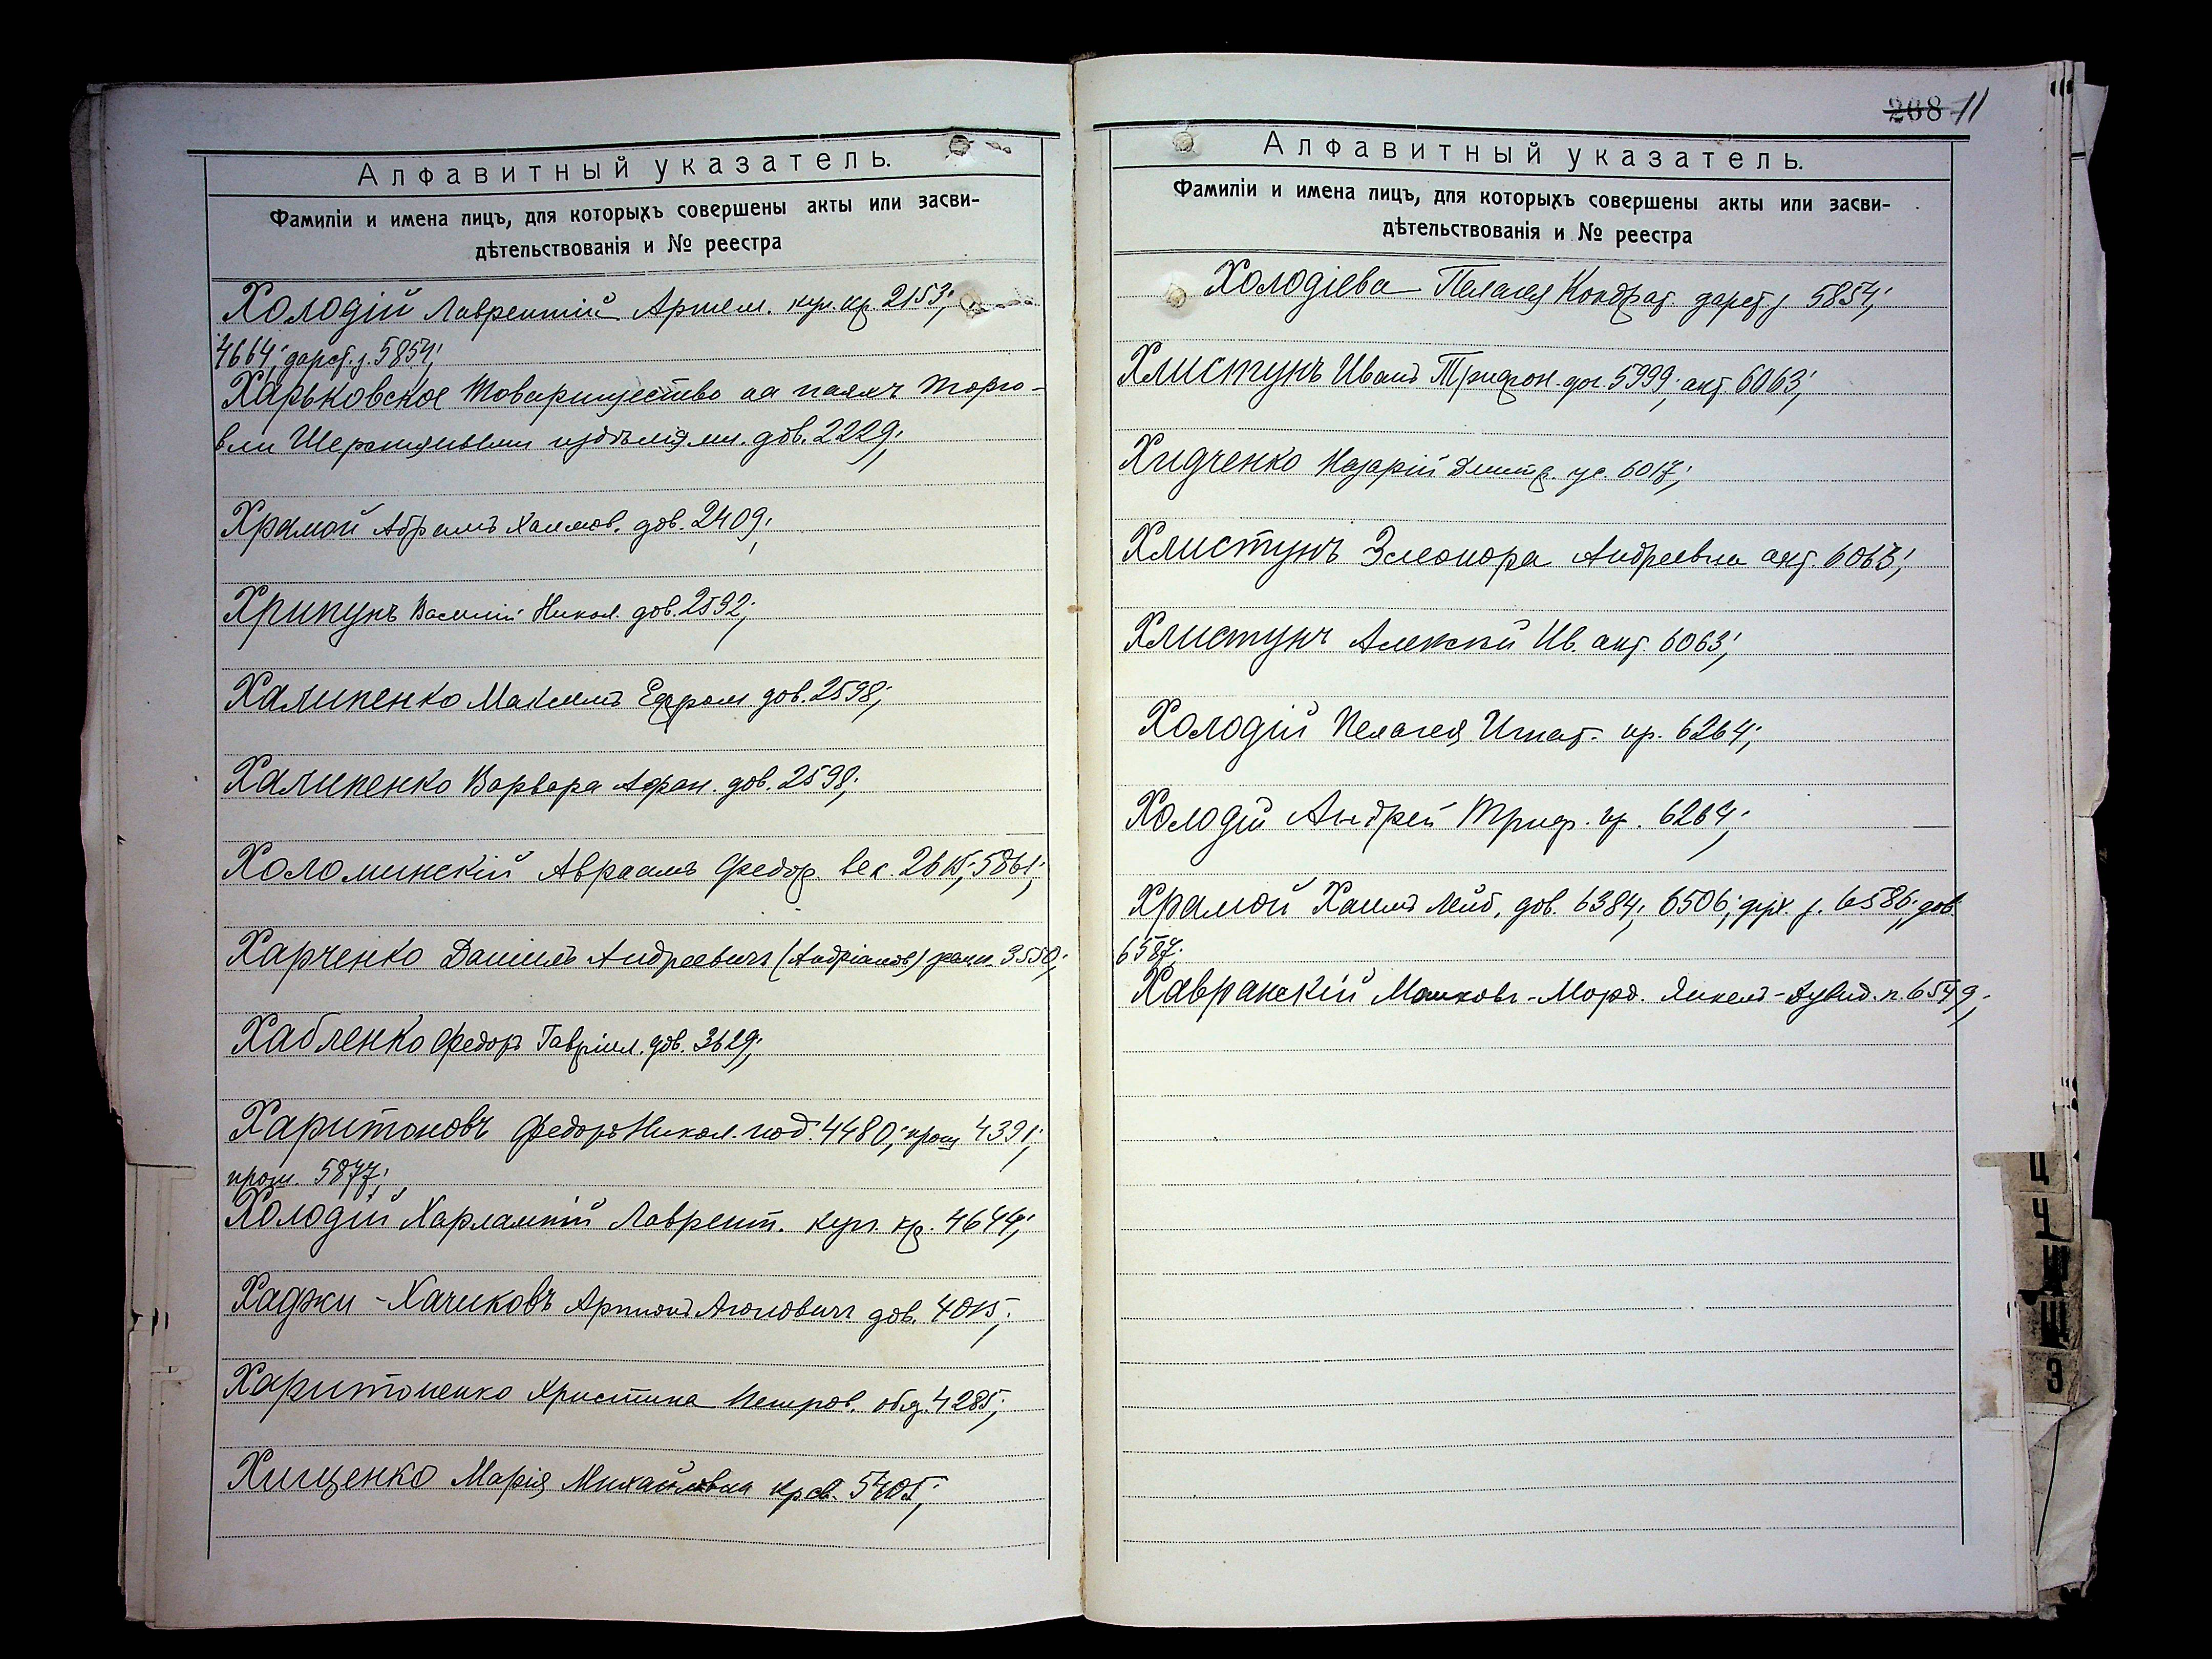 Алфавитный указатель.
Фамиліи и имена лицъ, для которыхъ совершены акты или засви-
дѣтельствованія и № реестра
Холодій Лаврентій Артем. куп. кр. 2153;
4664; дарст. з. 5854;
Харьковское Товарищество на паяхъ торго-
вли Шерстяными издѣліями. дов. 2229;
Храмой Абрамъ Хаимов. дов. 2409;
Хрипунъ Василій Никол. дов. 2592;
Халипенко Максимъ Ефром. дов. 2598;
Халипенко Варвара Афан. дов. 2598;
Холоминскій Авраамъ Федор. век. 2615; 5861;
Харченко Даніилъ Андреевичъ (Андріановъ) 3550;
Хабленко Федоръ Гавріил. дов. 3629;
Харитоновъ Федоръ Никол. 4480; 4391;
5877;
Холодій Харлампій Лаврент. куп. кр. 4644;
Хаджи-Хачиковъ дов. 4015;
Харитоненко Христина Петров. 4285;
Хищенко Марія Михайловна 5405;
208 11
Алфавитный указатель.
Фамиліи и имена лицъ, для которыхъ совершены акты или засви-
дѣтельствованія и № реестра
Холодіева Пелагея Кондрат. дарст. з. 5854;
Хлистунъ Иванъ Трифон. дог. 5999; акт. 6063;
Хидченко Назарій Дмитр. 6017;
Хлистунъ Элеонора Андреевна акт. 6063;
Хлистунъ Алексѣй Ив. акт. 6063;
Холодій Пелагея Игнат. пр. 6264;
Холодій Андрей Триф. пр. 6264;
Храмой Хаимъ Лейб. дов. 6384; 6506; 6586; дов.
6587;
Хавранскій Мошковъ-Морд. Янкель-Дувид. п. 6549;
Ц
Ч
Ш
Щ
Э